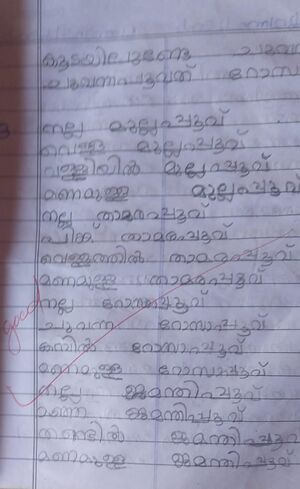 കൂടയിലുണ്ടേ ചുവന്ന
ചുവന്നപൂവത് റോസ
നല്ല മുല്ലപ്പൂവ്
വെള്ള മുല്ലപ്പൂവ്
വള്ളിയിൽ മുല്ലപ്പൂവ്
മണമുള്ള മുല്ലപ്പൂവ്
നല്ല താമരപ്പൂവ്
പിങ്ക് താമരപ്പൂവ്
വെള്ളത്തിൽ താമരപ്പൂവ്
മണമുള്ള താമരപ്പൂവ്
നല്ല റോസാപ്പൂവ്
ചുവന്ന റോസാപ്പൂവ്
കമ്പിൽ റോസാപ്പൂവ്
മണമുള്ള റോസാപ്പൂവ്
നല്ല ജമന്തിപ്പൂവ്
മഞ്ഞ ജമന്തിപ്പൂവ്
തണ്ടിൽ ജമന്തിപ്പൂവ്
മണമുള്ള ജമന്തിപ്പൂവ്
good